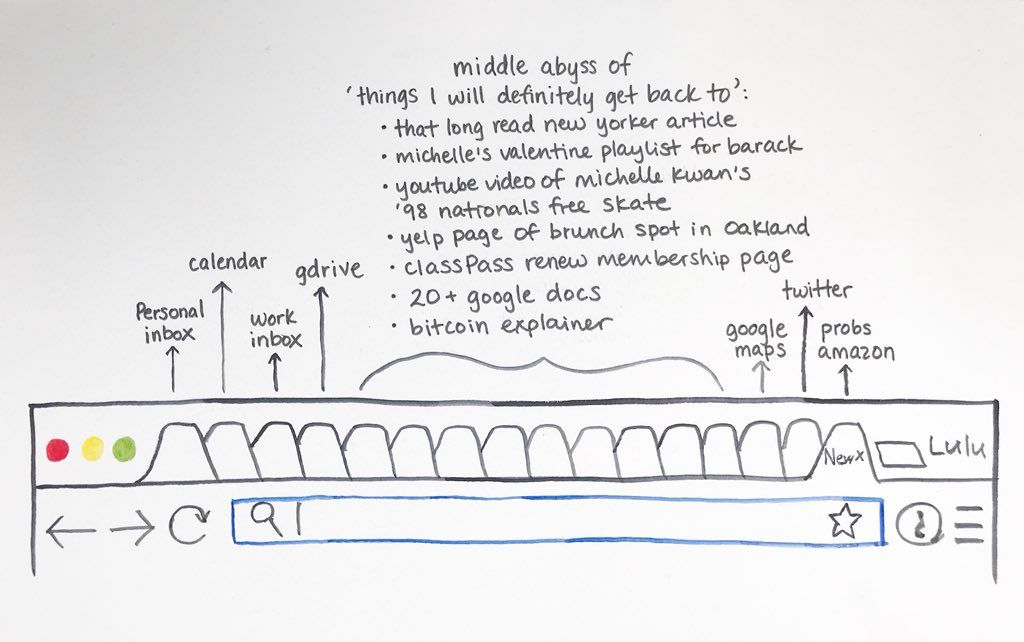 middle abyss of
'things I will definitely get back to':
• that long read new yorker article
• michelle's valentine playlist for barack
• youtube video of michelle kwan's
'98 nationals free skate
• yelp page of brunch spot in Oakland
• classPass renew membership page
• 20+ google docs
• bitcoin explainer
calendar
gdrive
Personal
inbox
work
inbox
twitter
google
maps
probs
amazon
New x
Lulu